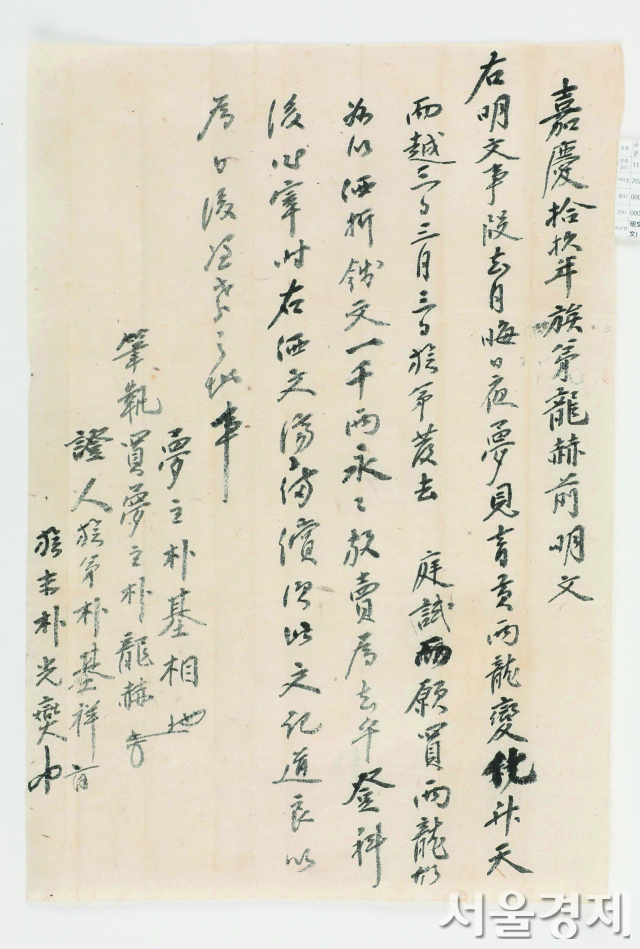 嘉慶拾玖年族弟龍赫前明文
右明文事段去月晦日夜夢見青黃兩龍變化升天
而越三日三月三日族弟發去 庭試而願買兩龍
放以 折錢文一千兩永永放賣爲去乎登科
後 宰時右 文 備償次此文記導良以
爲日後 事
夢主朴基相
筆執買夢主朴龍赫
證人族弟朴基祥
族末朴光燮
서울경제